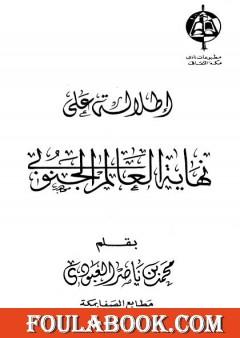 مطبوعات نادي
مكة الثقافي
إطلالة على
نهاية العالم الجنوبي
بقلم
محمد بن ناصر العبودي
مطابع الصفا بمكة
FOULABOOK.COM